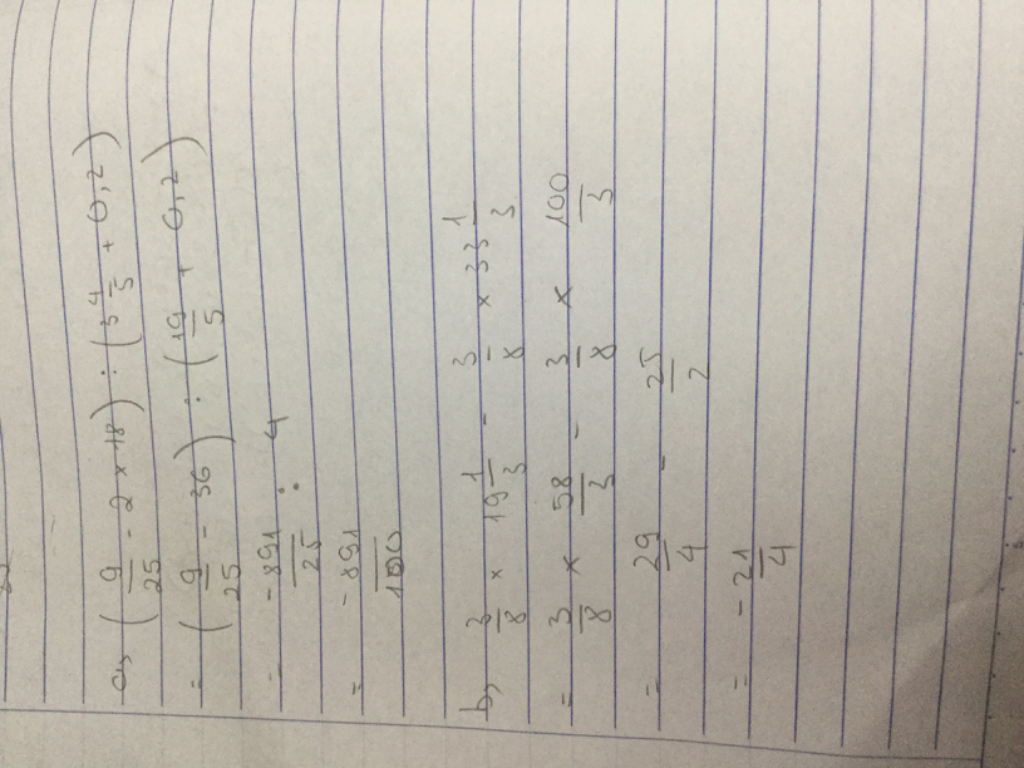 a, ( 9/25 - 2 × 18 ) : ( 3 4/5 + 0,2 )
= ( 9/25 - 36 ) : ( 19/5 + 0,2 )
= -891/25 : 4
= -891/100
b, 3/8 × 19 1/3 - 3/8 × 33 1/3
= 3/8 × 58/3 - 3/8 × 100/3
= 29/4 - 25/2
= -21/4